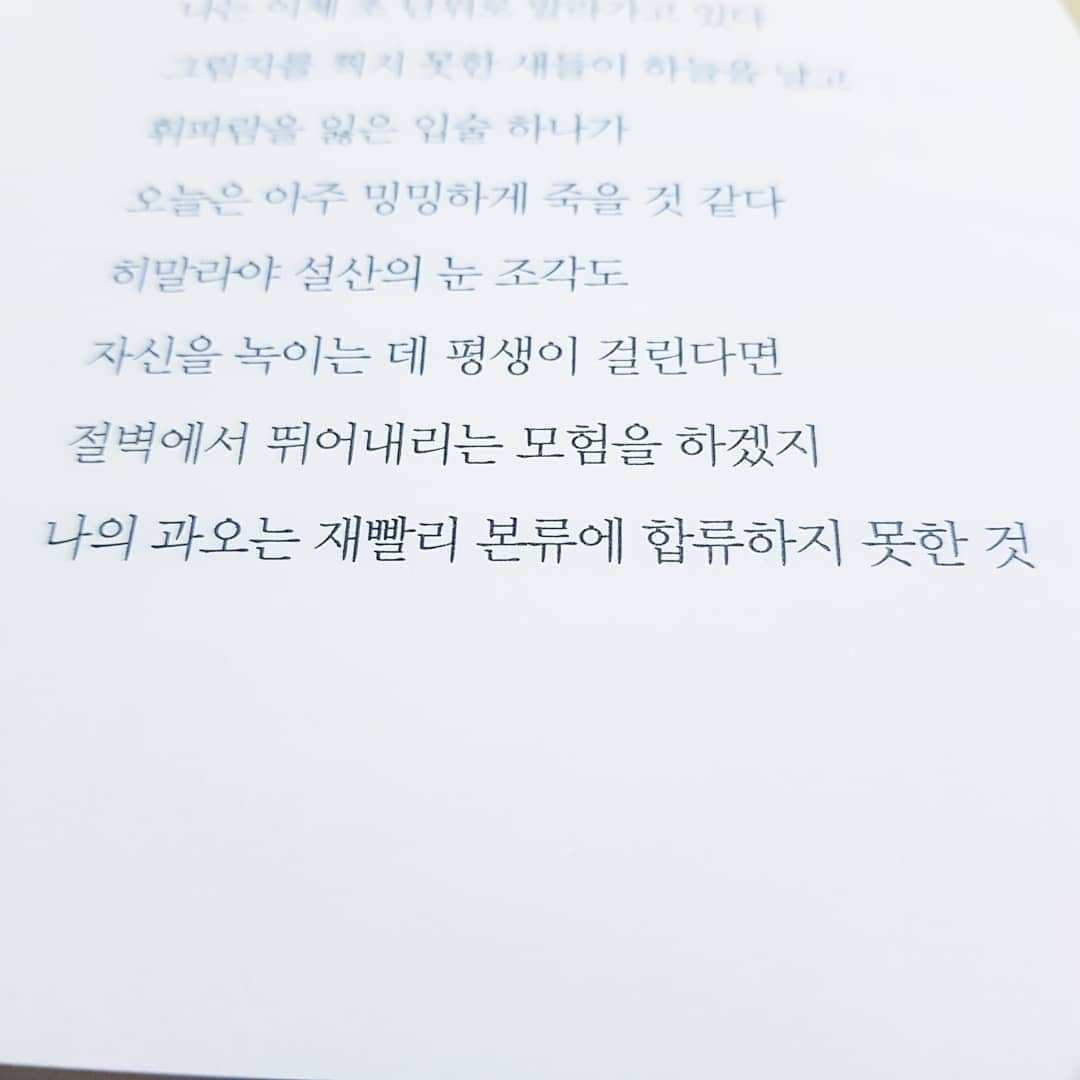 나는 이제 초 단위로 말라가고 있다
그림자를 찍지 못한 새들이 하늘을 날고
휘파람을 잃은 입술 하나가
오늘은 아주 밍밍하게 죽을 것 같다
히말라야 설산의 눈 조각도
자신을 녹이는 데 평생이 걸린다면
절벽에서 뛰어내리는 모험을 하겠지
나의 과오는 재빨리 본류에 합류하지 못한 것